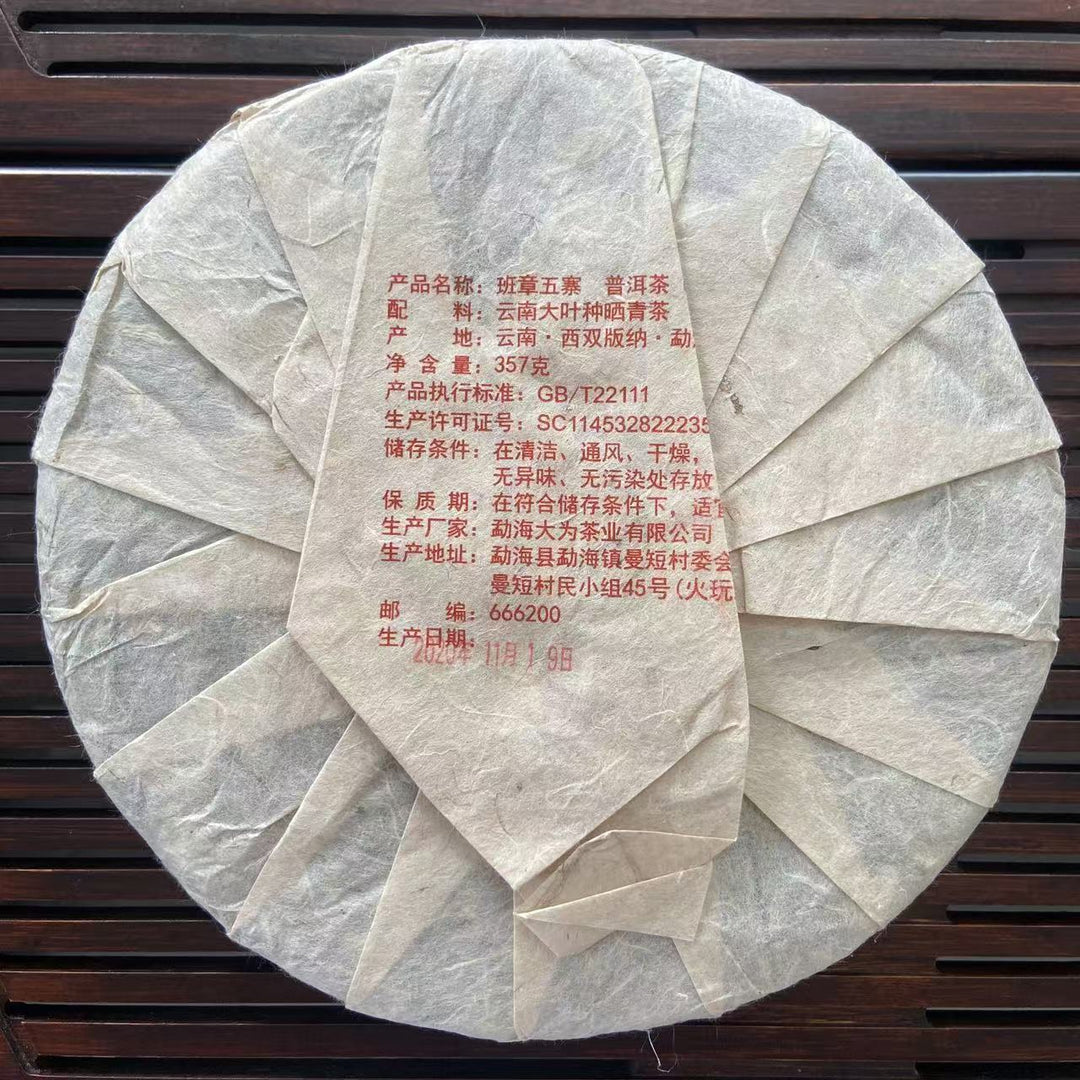 产品名称：班章五寨 普洱茶
配 料：云南大叶种晒青茶
产 地：云南·西双版纳·勐
净 含 量：357克
产品执行标准：GB/T22111
生产许可证号：SC114532822235
储存条件：在清洁、通风、干燥，
无异味、无污染处存放
保 质 期：在符合储存条件下，适宜
生产厂家：勐海大为茶业有限公司
生产地址：勐海县勐海镇曼短村委会
曼短村民小组45号(火玩
邮 编：666200
生产日期：
2020年 11月 19日